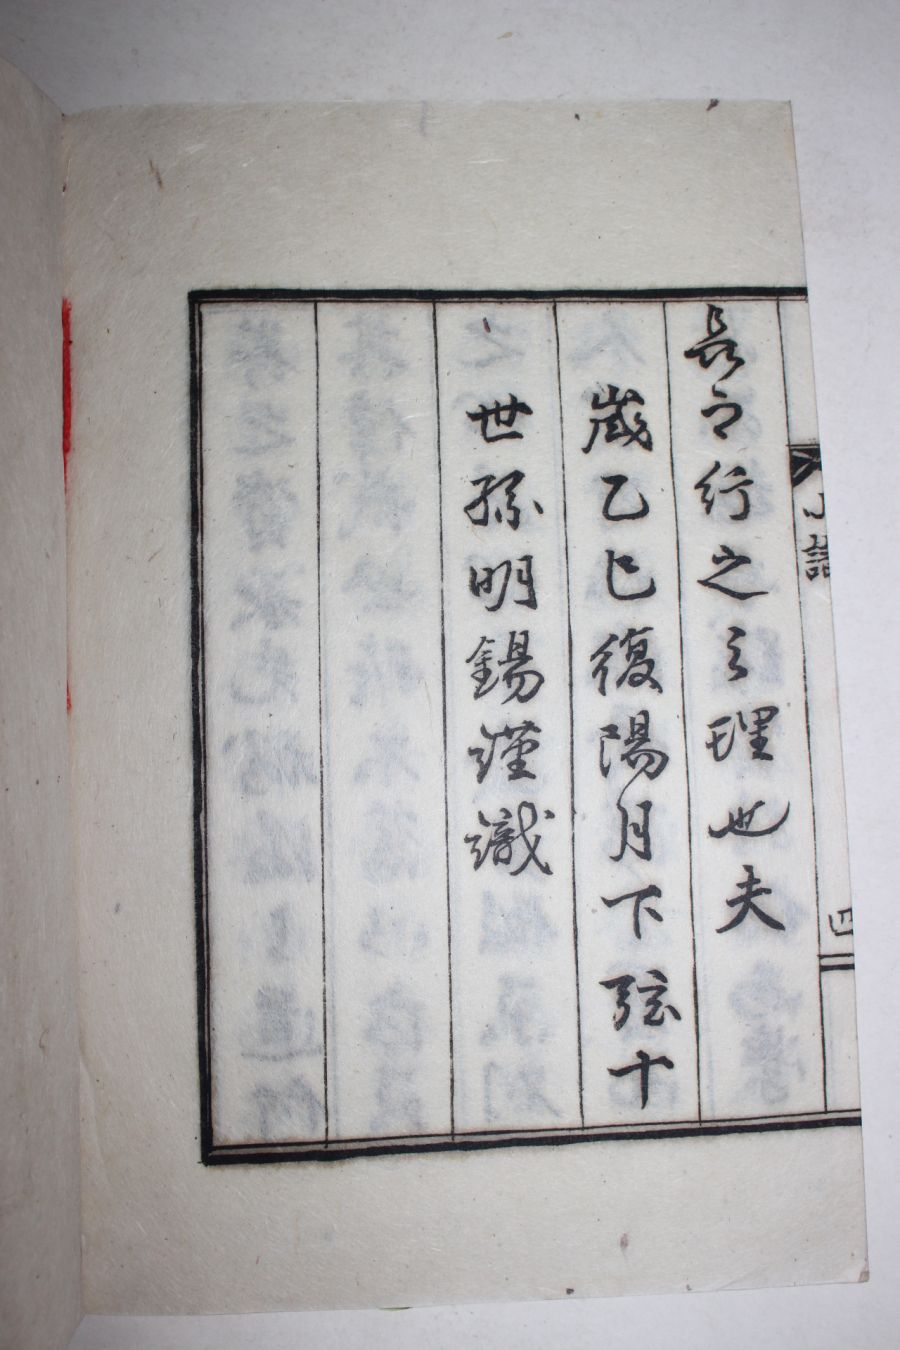 長之行之之理也夫
歲乙巳復陽月下弦十
世孫明錫謹識
語
四